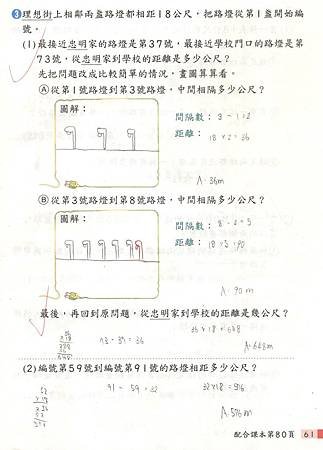 3 理想街上相鄰兩盞路燈都相距18公尺，把路燈從第1盞開始編
號。
(1)最接近忠明家的路燈是第37號，最接近學校門口的路燈是第
73號，從忠明家到學校的距離是多少公尺？
先把問題改成比較簡單的情況，畫圖算算看。
Ⓐ從第1號路燈到第3號路燈，中間相隔多少公尺？
圖解：
間隔數：3－1＝2
距離：18×2＝36
A：36m
Ⓑ從第3號路燈到第8號路燈，中間相隔多少公尺？
圖解：
間隔數：8－3＝5
距離：18×5＝90
A：90m
最後，再回到原問題，從忠明家到學校的距離是幾公尺？
73－37＝36
36×18＝648
A：648m
(2)編號第59號到編號第91號的路燈相距多少公尺？
91－59＝32
32×18＝576
A：576m
配合課本第80頁 61